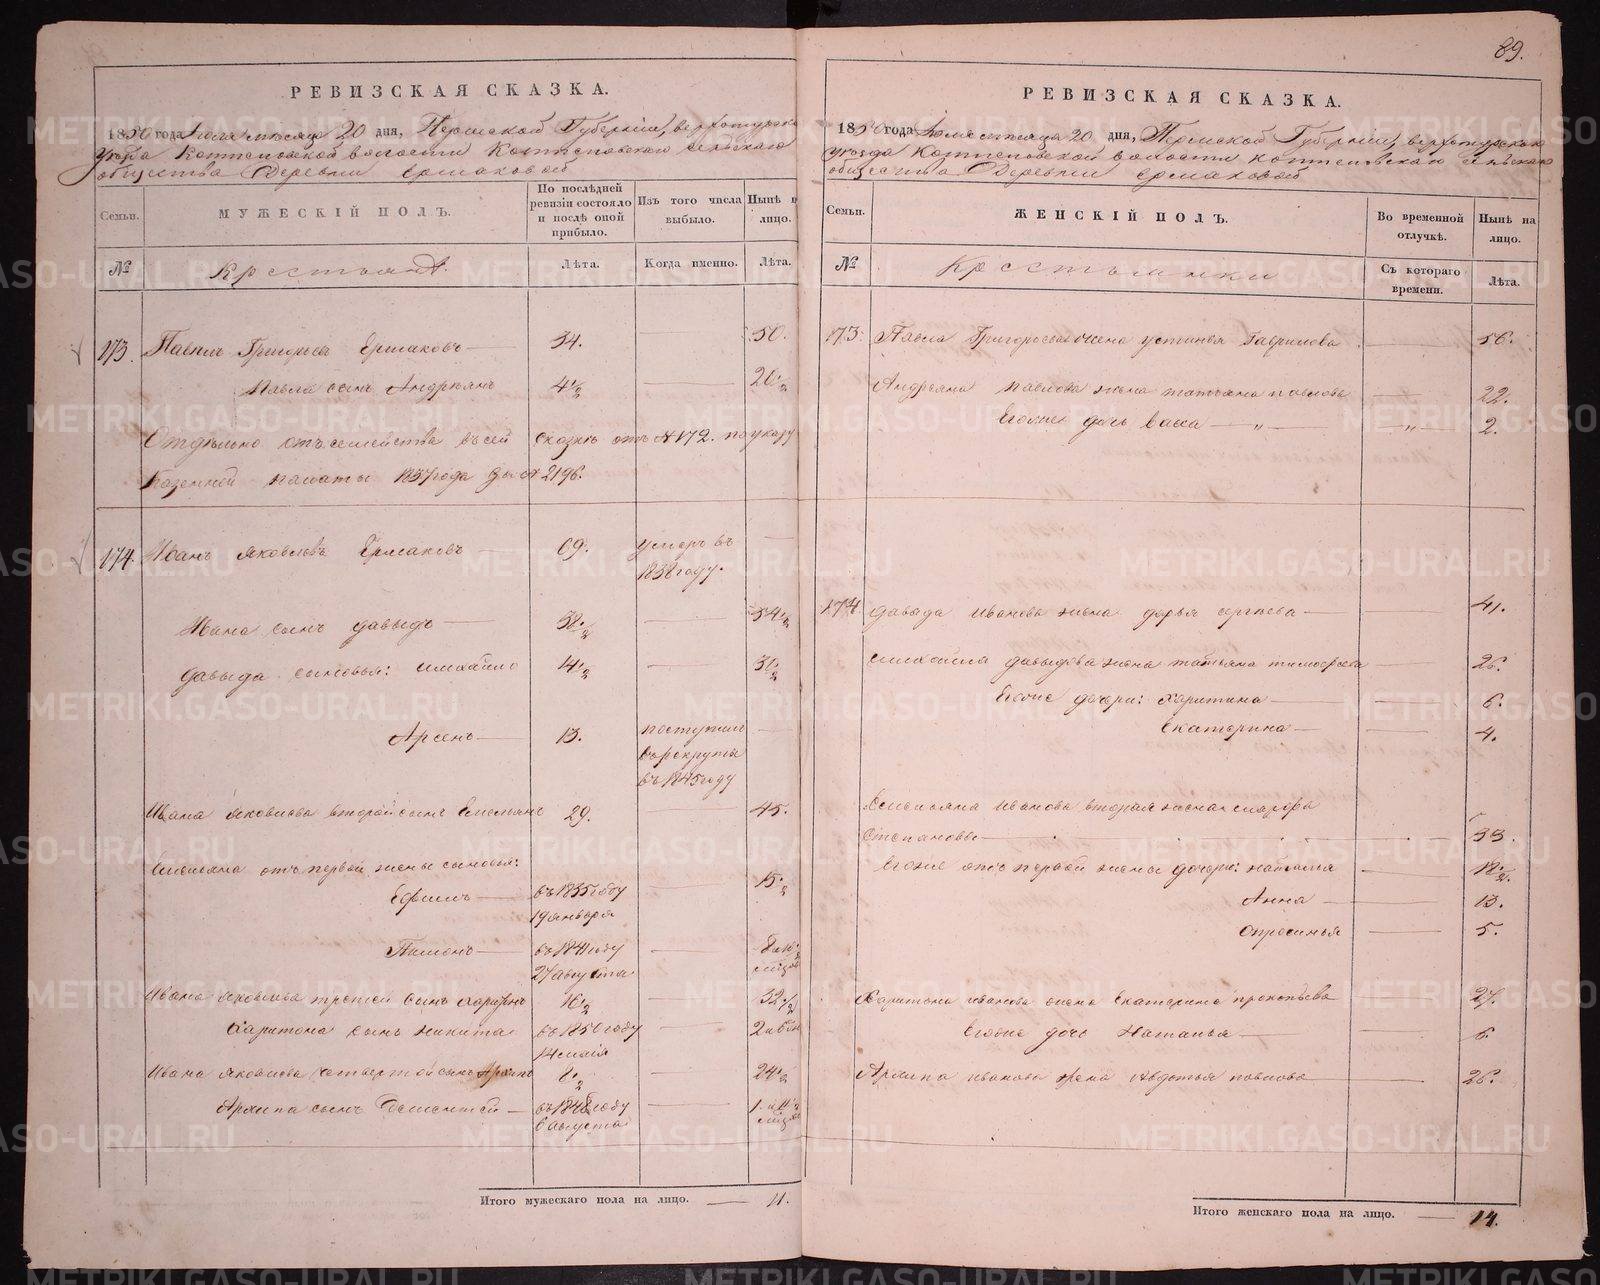 89.
РЕВИЗСКАЯ СКАЗКА.
1850 года Іюля мѣсяца 20 дня, Пермской Губерніи, верхотурскаго
уѣзда Коптеловской волости Коптеловскаго сельскаго
общества Деревни Ермаковой
Семьи. МУЖЕСКІЙ ПОЛЪ. По послѣдней ревизіи состояло и послѣ оной прибыло. Изъ того числа выбыло. Нынѣ на лицо.
№ Крестьяне. Лѣта. Когда именно. Лѣта.
173. Павелъ Григорьевъ Ермаковъ 34. 50.
Павла сынъ Андреянъ 4½ 20½
Отдѣльно отъ семейства въ сей сказкѣ отъ №172. по указу
Казенной палаты 1837 года за № 2196.
174. Иванъ Яковлевъ Ермаковъ 69. умеръ въ
1838 году.
Ивана сынъ давыдъ 38½ 54½
давыда сыновья: михайло 14½ 30½
Арсенъ 13. поступилъ
въ рекруты
въ 1845 году
Ивана Яковлева второй сынъ Емельянъ 29. 45.
Емельяна отъ первой жены сыновья:
Ефимъ въ 1835 году 15½
19 января
Пименъ въ 1841 году
27 августа
Ивана Яковлева третей сынъ Харитонъ 16½ 32½
Харитона сынъ никита въ 1850 году
14 маія
Ивана Яковлева четвертой сынъ Архипъ 8½ 24½
Архипа сынъ Дементей въ 1848 году
6 августа
Итого мужескаго пола на лицо. 11.
РЕВИЗСКАЯ СКАЗКА.
1850 года Іюля мѣсяца 20 дня, Пермской Губерніи, верхотурскаго
уѣзда Коптеловской волости Коптеловскаго сельскаго
общества Деревни Ермаковой
Семьи. ЖЕНСКІЙ ПОЛЪ. Во временной отлучкѣ. Нынѣ на лицо.
№ Крестьянки Съ котораго времени. Лѣта.
173. Павла Григорьева жена устинья Гаврилова 56.
Андреяна Павлова жена татьяна павлова 22.
Егоже дочь васса " " 2.
174 давыда Иванова жена дарья сергеева 41.
михайла давыдова жена татьяна тимофеева 26.
Егоже дочери: Харитина 6.
Екатерина 4.
Емельяна Иванова вторая жена
Степановна 33.
Егоже отъ первой жены дочери: наталья 18½.
Анна 13.
5.
Харитона иванова жена Екатерина прокопьева 27.
Егоже дочь Наталья 6.
Архипа иванова жена Авдотья павлова 26.
Итого женскаго пола на лицо. 14.
METRIKI.GASO-URAL.RU